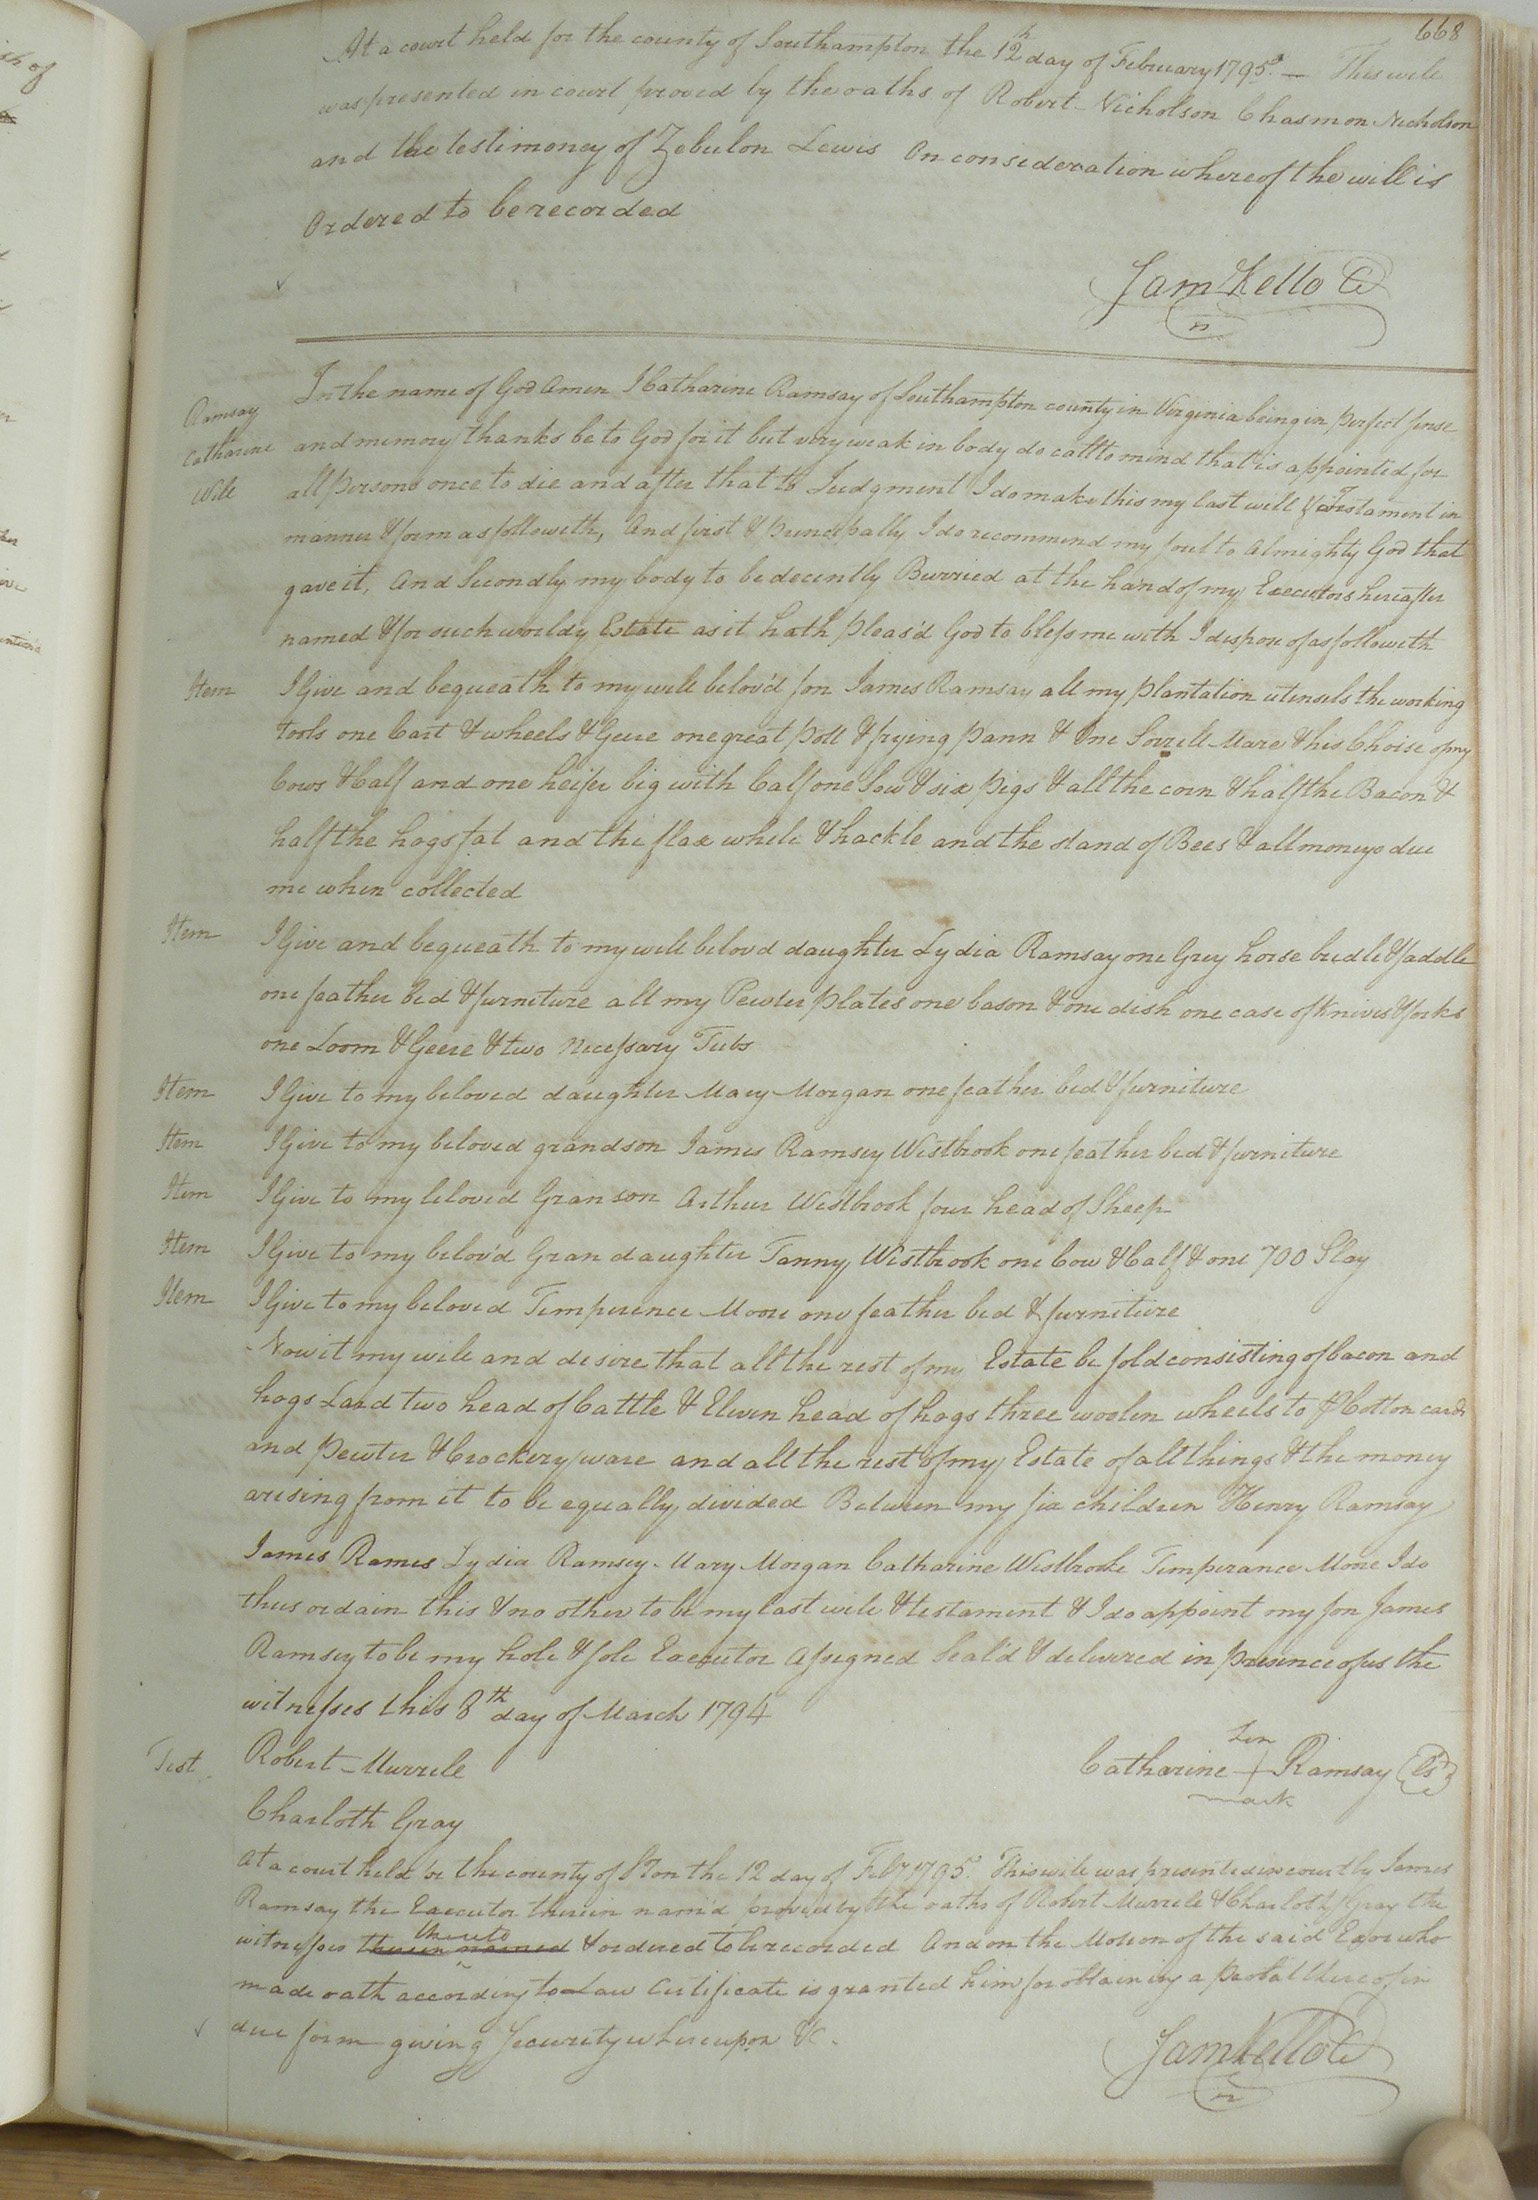 668
At a court held for the county of Southampton the 12th day of February 1795. — This will
was presented in court proved by the oaths of Robert Nicholson Chasmon Nicholson
and the testimoney of Zebulon Lewis On consideration whereof the will is
Ordered to be recorded
Sam Kello C
In the name of God Amen I Catharine Ramsay of Southampton county in Virginia being in perfect sense
Ramsay
and memory thanks be to God for it but very weak in body do call to mind that is appointed for
Catharine
all persons once to die and after that to Judgment I do make this my last will & Testament in
Will
manner & form as followeth, And first & principally I do recommend my soul to Almighty God that
gave it, And Secondly my body to be decently Burried at the hand of my Executors hereafter
named & for such worldy Estate as it hath pleas'd God to bless me with I dispose of as followeth
Item I Give and bequeath to my well belov'd son James Ramsay all my plantation utensels the working
tools one Cart & wheels & Geere one great Pott & frying pann & One Sorrell Mare & his Choise of my
Cows & Calf and one heifer big with Calf one Sow & six pigs & all the corn & half the Bacon &
half the hogs fat and the flax while & hackle and the stand of Bees & all moneys due
me when collected
Item I Give and bequeath to my well belovd daughter Lydia Ramsay one Grey horse bridle & saddle
one feather bed & furniture all my Pewter plates one bason & one dish one case of Knives & forks
one Loom & Geere & two Necessary Tubs
Item I Give to my beloved daughter Mary Morgan one feather bed & furniture
Item I Give to my beloved grandson James Ramsey Westbrook one feather bed & furniture
Item I Give to my beloved Gran son Arthur Westbrook four head of Sheep
Item I Give to my belov'd Gran daughter Fanny Westbrook one Cow & Calf & one 700 Slay
Item I Give to my beloved Temperence Moore one feather bed & furniture
Now it my will and desire that all the rest of my Estate be sold consisting of bacon and
hogs Lard two head of Cattle & Eleven head of hogs three woolen wheels to Cotton cards
and pewter & Crockery ware and all the rest of my Estate of all things & the money
arising from it to be equally divided Between my six children Henry Ramsay
James Rames Lydia Ramsey Mary Morgan Catharine Westbrook Temperance More I do
thus ordain this & no other to be my last will & testament & I do appoint my son James
Ramsey to be my hole & sole Executor Assigned Seal'd & delivered in presence of us the
witnesses this 8th day of March 1794
Test Robert Murrele
Charloth Gray
her
Catharine + Ramsay LS
mark
At a court held for the county of Ston the 12 day of Feby 1795. This will was presented in court by James
Ramsay the Executor therein nam'd proved by the oaths of Robert Murrele & Charloth Gray the
thereto
witnesses therein named & ordered to be recorded And on the Motion of the said Exor who
made oath according to Law Certificate is granted him for obtaining a probat thereof in
due form giving Security whereupon &c.
Sam Kello C